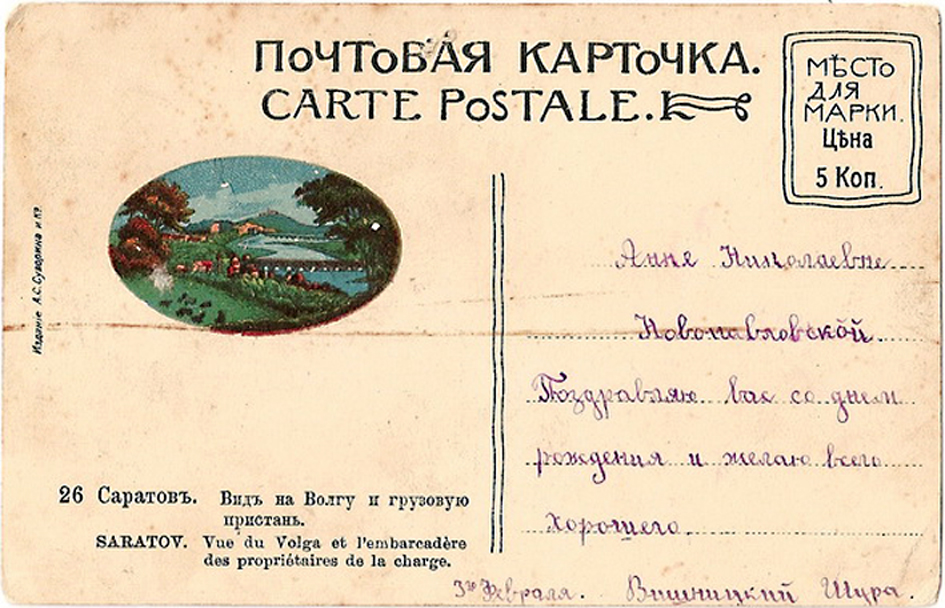 ПОЧТОВАЯ КАРТОЧКА.
CARTE POSTALE.
МѢСТО
ДЛЯ
МАРКИ.
Цѣна
5 Коп.
Изданіе А.С.Суворина и Кº
Анне Николаевне
Новопавловской.
Поздравляю вас со днем
рождения и желаю всего
хорошего.
3го Февраля. Вишницкий Шура.
26 Саратовъ. Видъ на Волгу и грузовую
пристань.
SARATOV. Vue du Volga et l'embarcadère
des propriétaires de la charge.